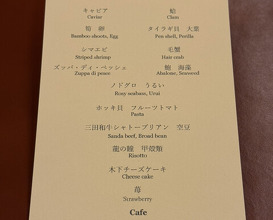 キャビア 鮑
Caviar Clam
筍 卵 タイラギ貝 大葉
Bamboo shoots, Egg Pen shell, Perilla
シマエビ 毛蟹
Striped shrimp Hair crab
ズッパ・ディ・ペッシェ 鮑 海藻
Zuppa di pesce Abalone, Seaweed
ノドグロ うるい
Rosy seabass, Urui
ホッキ貝 フルーツトマト
Pasta
三田和牛シャトーブリアン 空豆
Sanda beef, Broad bean
龍の瞳 甲殻類
Risotto
木下チーズケーキ
Cheese cake
苺
Strawberry
Cafe